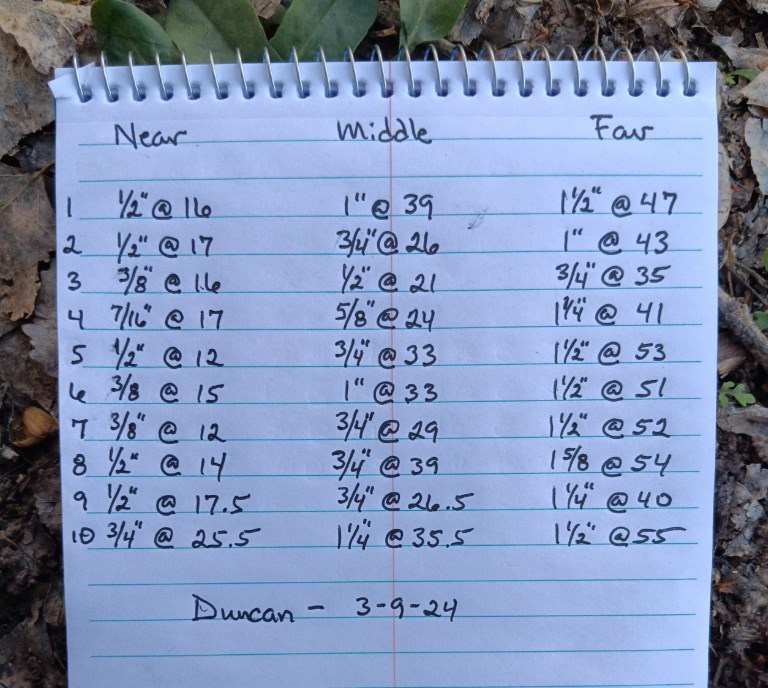 Near Middle Far
1 1/2" @ 16 1" @ 39 1 1/2" @ 47
2 1/2" @ 17 3/4" @ 26 1" @ 43
3 3/8" @ 16 1/2" @ 21 3/4" @ 35
4 7/16" @ 17 5/8" @ 24 1 1/4" @ 41
5 1/2" @ 12 3/4" @ 33 1 1/2" @ 53
6 3/8 @ 15 1" @ 33 1 1/2" @ 51
7 3/8" @ 12 3/4" @ 29 1 1/2" @ 52
8 1/2" @ 14 3/4" @ 39 1 5/8 @ 54
9 1/2" @ 17.5 3/4" @ 26.5 1 1/4" @ 40
10 3/4" @ 25.5 1 1/4" @ 35.5 1 1/2" @ 55
Duncan - 3-9-24